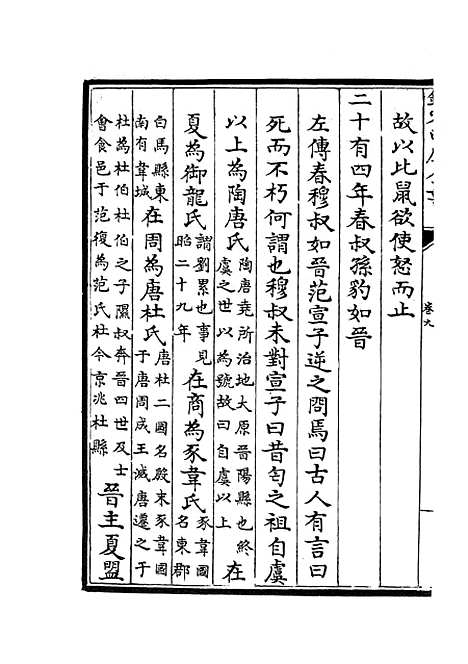 卷九
故以比鼠欲使怒而止
二十有四年春叔孫豹如晉
左傳春穆叔如晉范宣子逆之問焉曰古人有言曰
死而不朽何謂也穆叔未對宣子曰昔匄之祖自虞
以上為陶唐氏陶唐堯所治地大原晉陽縣也終虞之世以為號故曰自虞以上在
夏為御龍氏謂劉累也事見昭二十九年在商為豕韋氏豕韋國名東郡
白馬縣東南有韋城在周為唐杜氏唐杜二國名殷末豕韋國于唐周成王滅唐遷之于
杜為杜伯杜伯之子隰叔奔晉四世及士會食邑于范復為范氏杜今京兆杜縣晉主夏盟